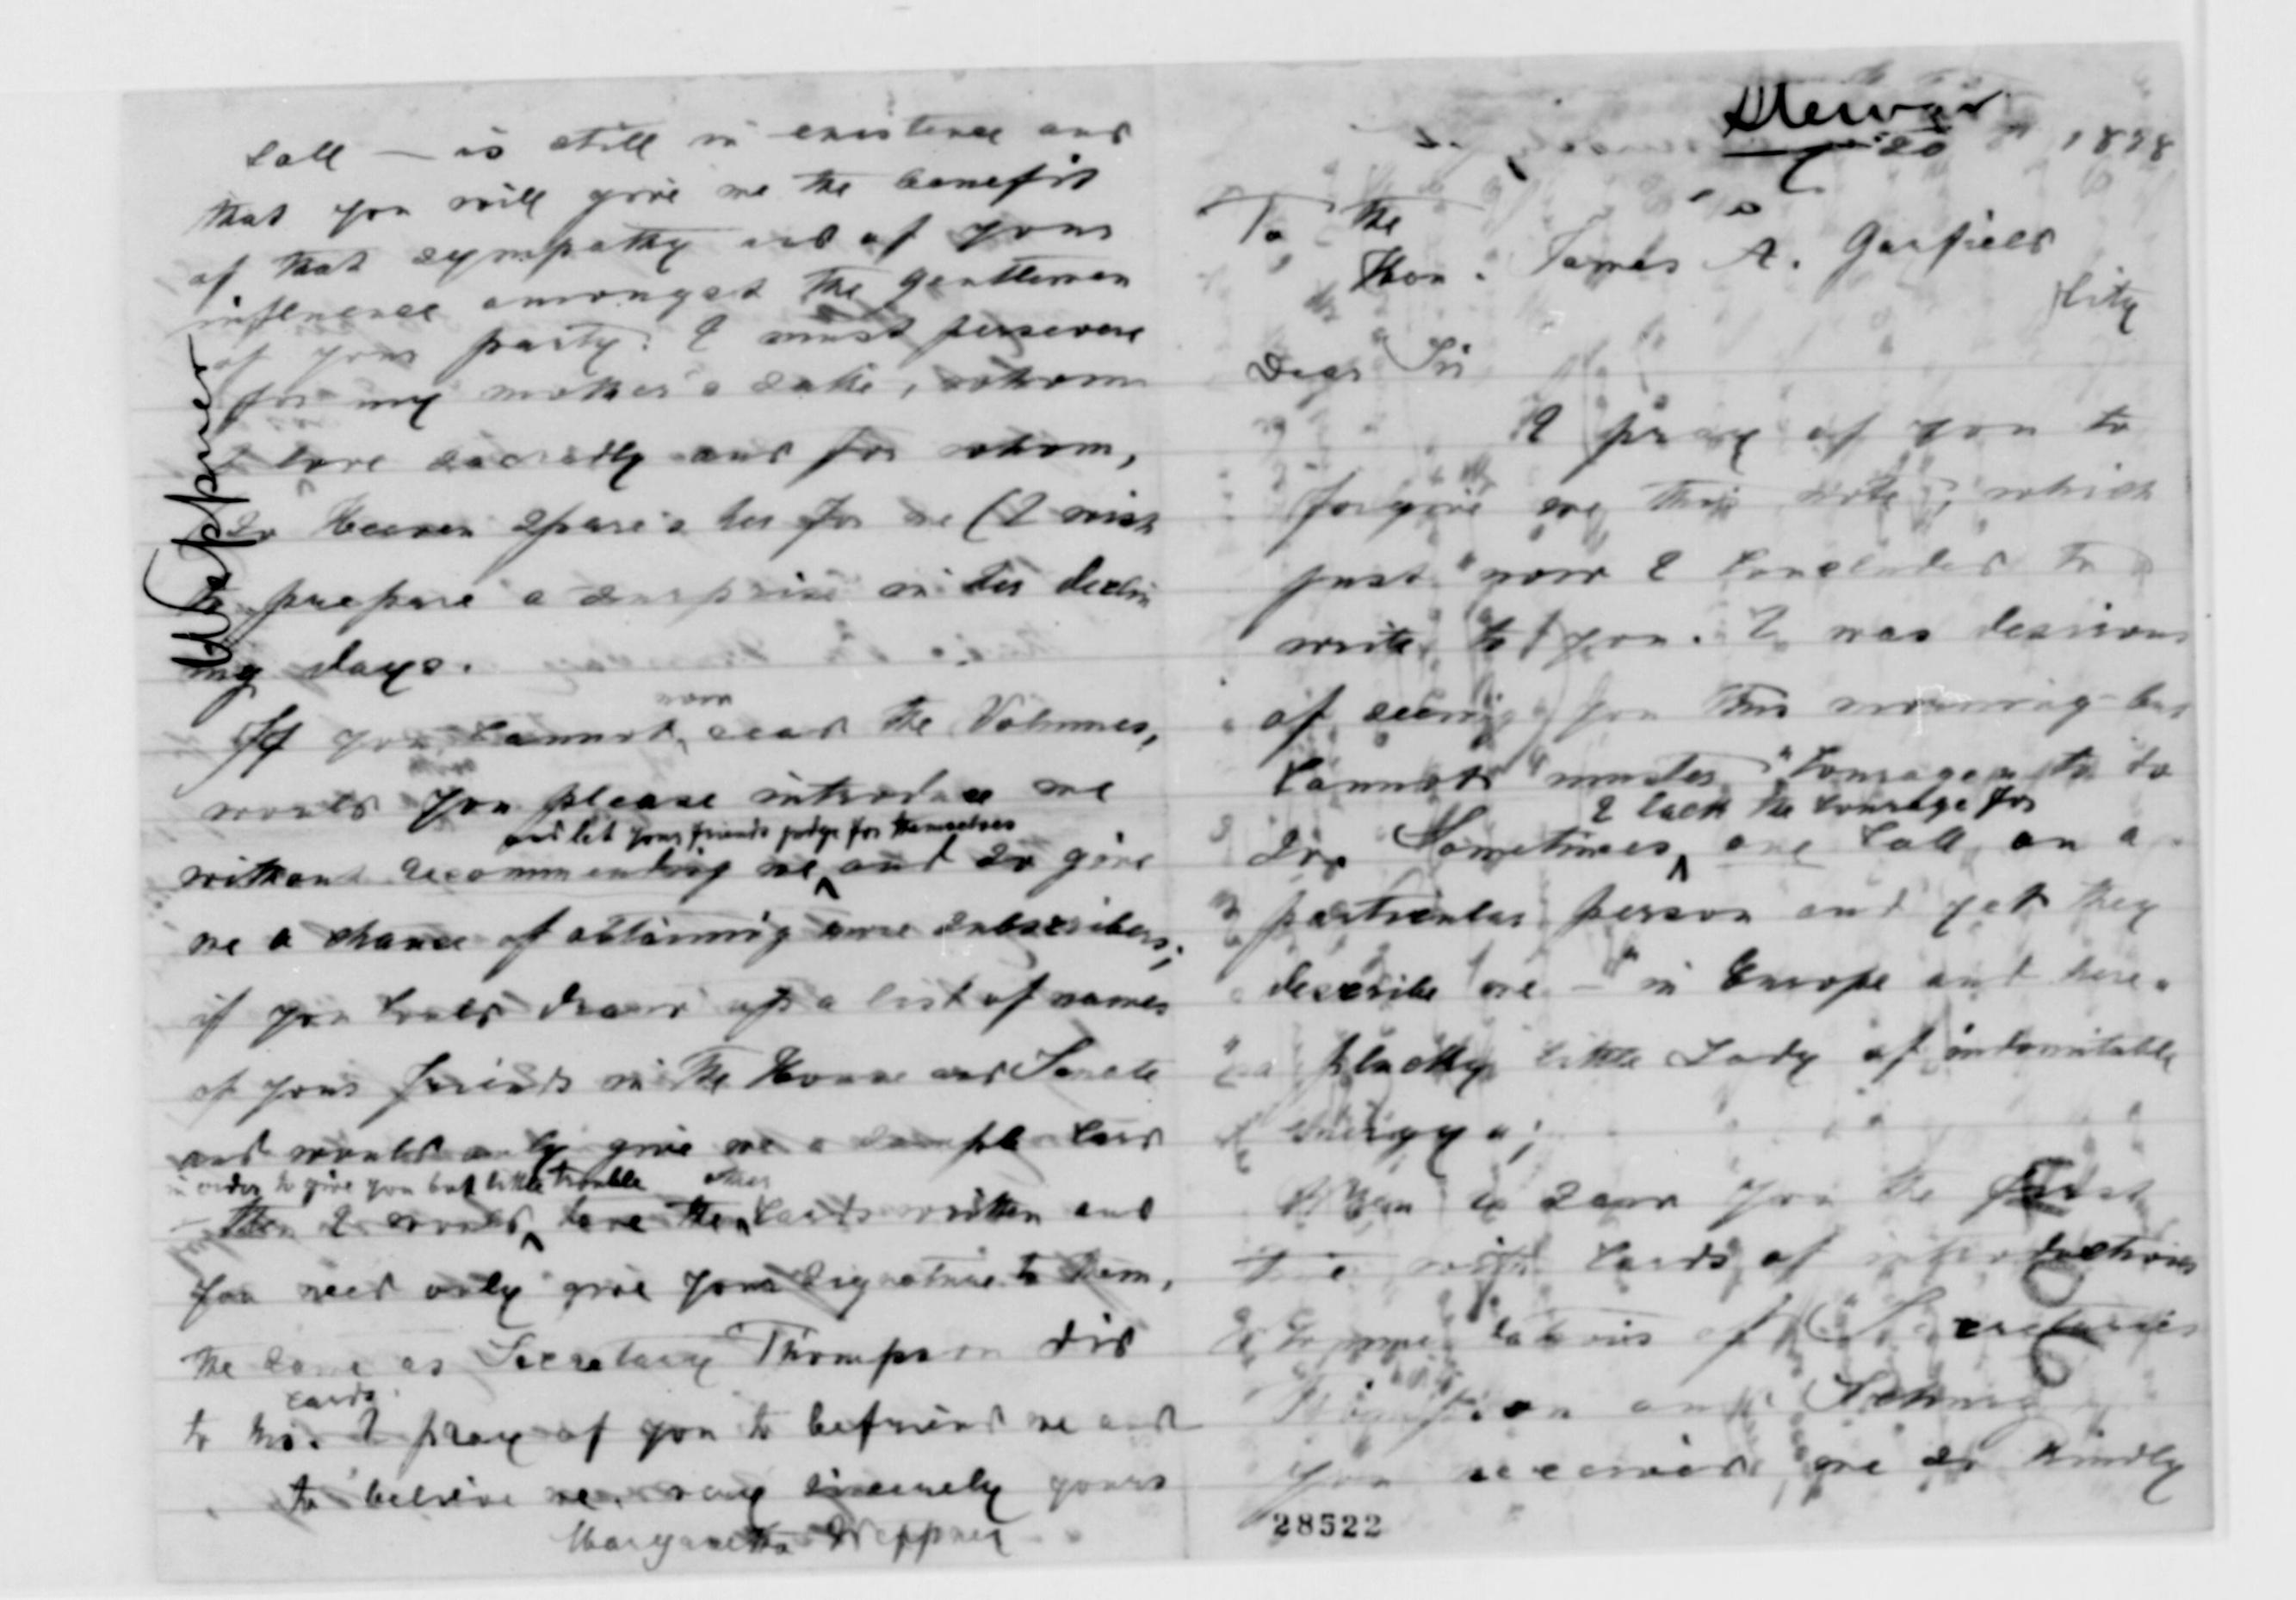 call — is still in existence and
that you will give me the benefit
of that sympathy and of your
influence amongst the gentlemen
of your party. I must persevere
for my mother's sake, whom
I love sacredly and for whom,
so Heaven spares her for me (I wish
to prepare a surprise in her declin
ing days.
now
If you cannot read the Volumes,
would you please introduce me
and let your friends judge for themselves
without recommending me and so give
me a chance of obtaining some subscribers;
if you could draw up a list of names
of your friends in the House and Senate
and would only give me a sample card
in order to give you but little trouble other
— then I would have the cards written and
you need only give your signature to them,
the same as Secretary Thompson did
cards.
to his. I pray of you to befriend me and
to believe me. very sincerely yours
Margaretha Weppner
Weppner
Stewar
20 1878
To the
Hon. James A. Garfield
City
Dear Sir
I pray of you to
forgive me this note, which
just now I concluded to
write to you. I was desirous
of seeing you this morning but
cannot muster "courage" to do
I lack the courage for
so. Sometimes one call on a
particular person and yet they
describe me — in Europe and here
"a plucky little Lady of indomitable
energy";
When I saw you the first
time with cards of introduction
of Secretaries
Thompson and Schurz
you received me so kindly
28522